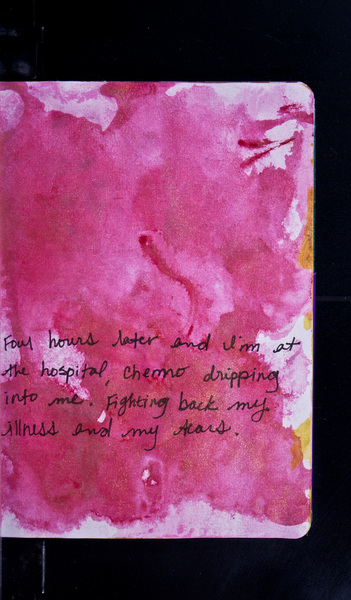 Four hours later and I'm at
the hospital, chemo dripping
into me. Fighting back my
illness and my tears.